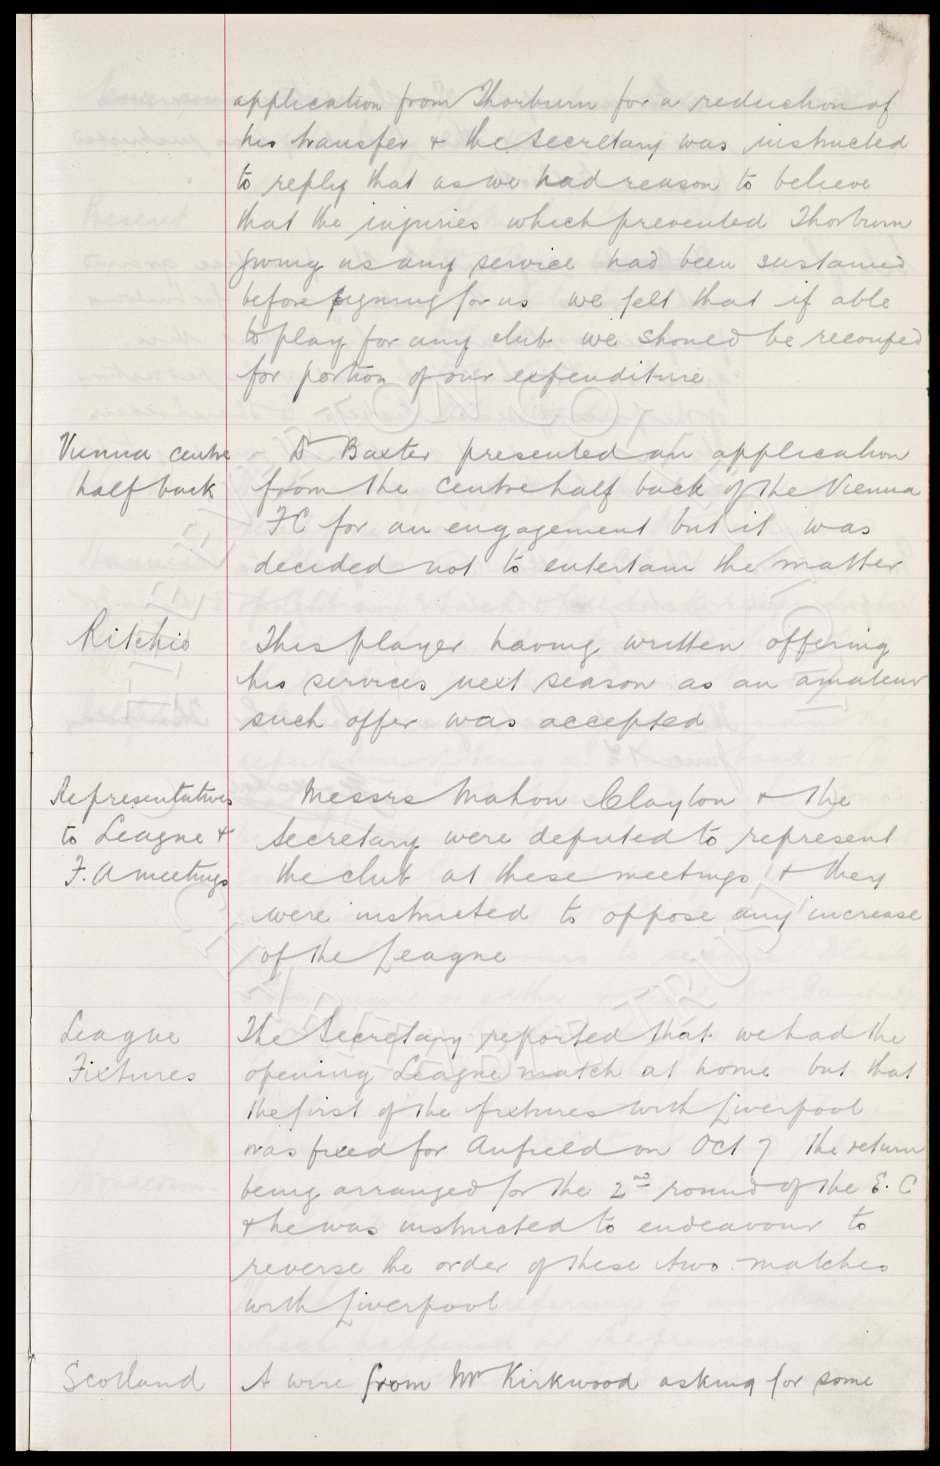 application from Thorburn for a reduction of
his transfer & the Secretary was instructed
to reply that as we had reason to believe
that the injuries which prevented Thorburn
giving us any service had been sustained
before signing for us we felt that if able
to play for any club we should be recouped
for portion of our expenditure
Vienna centre
half back
Dr Baxter presented an application
from the centre half back of the Vienna
FC for an engagement but it was
decided not to entertain the matter
Ritchie
This player having written offering
his services next season as an amateur
such offer was accepted
Representatives
to League &
F.A meetings
Messrs Mahon Clayton & the
Secretary were deputed to represent
the club at these meetings & they
were instructed to oppose any increase
of the League
League
Fixtures
The Secretary reported that we had the
opening League match at home but that
the first of the fixtures with Liverpool
was fixed for Anfield on Oct 7 the return
being arranged for the 2nd round of the E.C
& he was instructed to endeavour to
reverse the order of these two matches
with Liverpool
Scotland
A wire from Mr Kirkwood asking for some
EVERTON FC
CHARITABLE TRUST